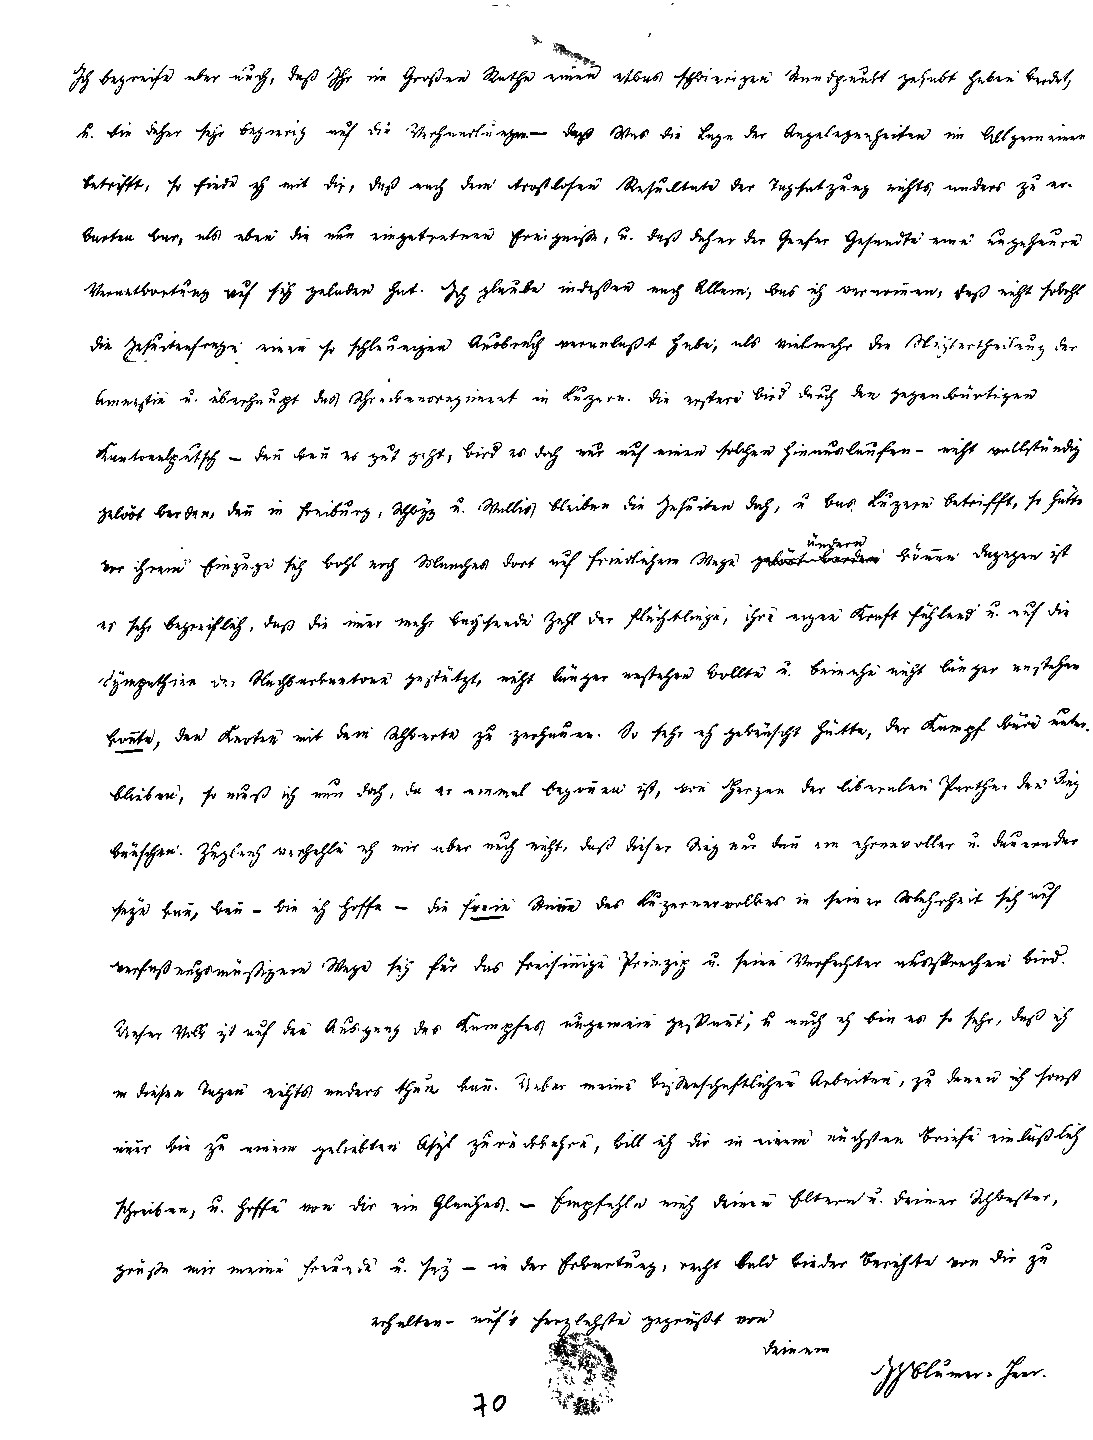 Ich begreife aber auch, daß Ihr im Großen Rathe einen etwas schwierigen Standpunkt gehabt haben werdet,
u. bin daher sehr begierig auf die Verhandlungen. — Was die Lage der Angelegenheiten im Allgemeinen
betrifft, so finde ich mit dir, daß nach dem trostlosen Resultate der Tagsatzung nichts anders zu er-
warten war, als eben die nun eingetretnen Ereignisse, u. daß daher der Genfer Gesandte eine ungeheure
Verantwortung auf sich geladen hat. Ich glaube indeßen nach Allem, was ich vernommen, daß nicht sowohl
die Jesuitenfrage einen so schleunigen Ausbruch veranlaßt habe, als vielmehr die Nichtertheilung der
Amnestie u. überhaupt das Schreckensregiment in Luzern. Die erstere wird durch den gegenwärtigen
Kantonalputsch – den̄ wen̄ es gut geht, wird es doch nur auf einen solchen hinauslaufen – nicht vollständig
gelöst werden, den̄ in Freiburg, Schwyz u. Wallis bleiben die Jesuiten doch, u was Luzern betrifft, so hätte
vor ihrem Einzuge sich wohl noch Manches dort auf friedlichem Wege ändern können dagegen ist
es sehr begreiflich, daß die im̄er mehr wachsende Zahl der Flüchtlinge, ihre eigne Kraft fühlend u. auf die
Sympathien der Nachbarkantone gestützt, nicht länger anstehen wollte u. beinahe nicht länger anstehen
kon̄te, den Knoten mit dem Schwerte zu zerhauen. So sehr ich gewünscht hätte, der Kampf wäre unter-
blieben, so muß ich nun doch, da er einmal begon̄en ist, von Herzen der liberalen Parthei den Sieg
wünschen. Zugleich verhehle ich mir aber auch nicht, daß dieser Sieg nur dan̄ ein ehrenvoller u. dauernder
seyn kan̄, wen̄ – wie ich hoffe – die freie Stim̄e des Luzernervolkes in seiner Mehrheit sich auf
verfaßungsmäßigem Wege sich für das freisin̄ige Prinzip u. seine Verfechter aussprechen wird.
Unser Volk ist auf den Ausgang des Kampfes ungemein gespan̄t, u auch ich bin es so sehr, daß ich
in diesen Tagen nichts anders thun kan̄. Ueber meine wissenschaftlichen Arbeiten, zu denen ich sonst
im̄er wie zu einem geliebten Asyl zurückkehre, will ich dir in einem nächsten Briefe einläßlich
schreiben, u. hoffe von dir ein Gleiches. – Empfehle mich deinen Eltern u. deiner Schwester,
grüße mir meine Freunde u. sey – in der Erwartung, recht bald wieder Berichte von dir zu
erhalten – auf's herzlichste gegrüßt von
deinem
JJBlumer-Heer.
70